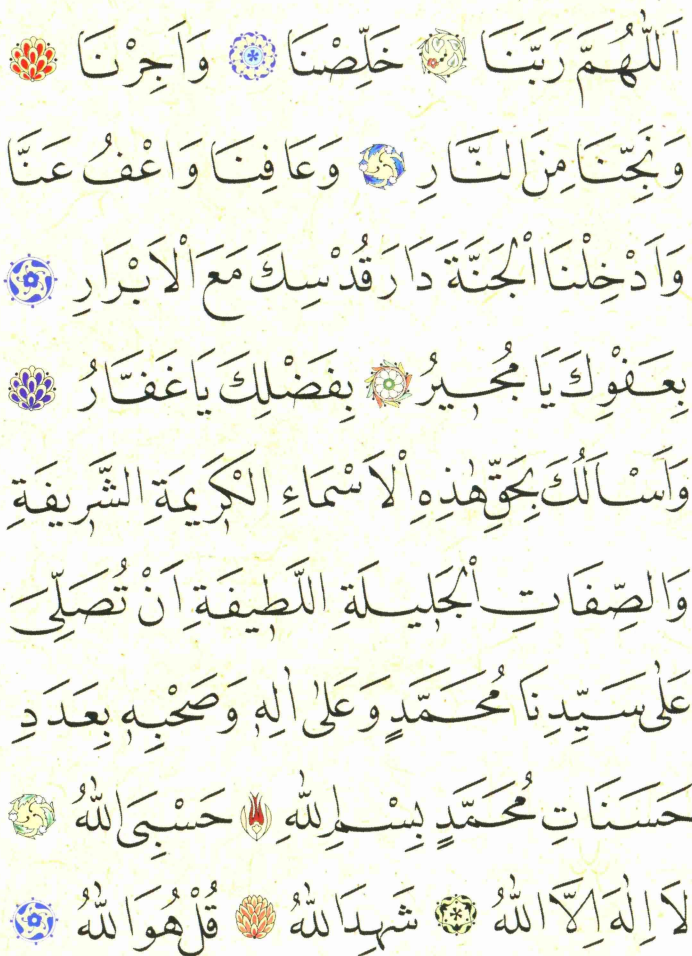 اَللّٰهُمَّ رَبَّنَا خَلِّصْنَا وَاَجِرْنَا
وَنَجِّنَا مِنَ النَّارِ وَعَافِنَا وَاعْفُ عَنَّا
وَاَدْخِلْنَا الْجَنَّةَ دَارَ قُدْسِكَ مَعَ الْاَبْرَارِ
بِعَفْوِكَ يَا مُجِيرُ بِفَضْلِكَ يَا غَفَّارُ
وَاَسْاَلُكَ بِحَقِّ هٰذِهِ الْاَسْمَاءِ الْكَرِيمَةِ الشَّرِيفَةِ
وَالصِّفَاتِ الْجَلِيلَةِ اللَّطِيفَةِ اَنْ تُصَلِّىَ
عَلٰى سَيِّدِنَا مُحَمَّدٍ وَعَلٰى اٰلِهِ وَصَحْبِهِ بِعَدَدِ
حَسَنَاتِ مُحَمَّدٍ بِسْمِ لِلّٰهِ حَسْبِىَ اللّٰهُ
لَا اِلٰهَ اِلَّا اللّٰهُ شَهِدَ اللّٰهُ قُلْ هُوَ اللّٰهُ